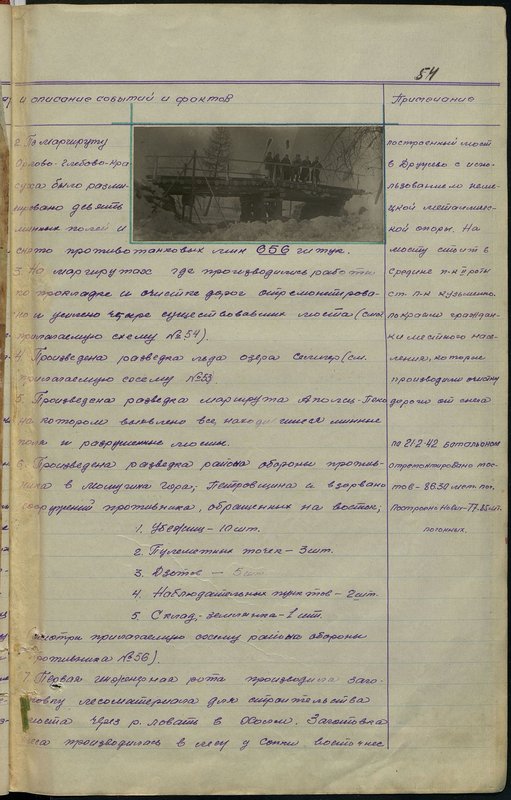 54
и описание событий и фактов
Примечание
2. По маршруту
Орлово-Глебово-Кра-
суха было разми-
нировано девять
минных полей и
снято противотанковых мин 656 штук.
3. На маршрутах где производились работы
по прокладке и очистке дорог отремонтирова-
но и усилено четыре существовавших моста (смот
прилагаемую схему № 54).
4. Произведена разведка льда озера Селигер (см.
прилагаемую схему № 53
5. Произведена разведка маршрута
на котором выявлено все находившиеся минные
поля и разрушенные мосты.
6. Произведена разведка района обороны против-
ника в гора, Петровщина и взорвано
сооружений противника, обращенных на восток;
1. Убежищ - 10 шт.
2. Пулеметных точек - 3 шт.
3. Дзотов - 5 шт.
4. Наблюдательных пунктов - 2 шт.
5. Склад-землянка - 1 шт.
смотри прилагаемую схему района обороны
противника № 56).
7. Первая инженерная рота производила заго-
товку лесоматериала для строительства
моста через р. Ловать в Холм. Заготовка
леса производилась в лесу у Сопки восточнее
построенный мост
в с испо-
льзованием немец-
кой металличес-
кой опоры. На
мосту стоит в
средине п-к роты
ст. л-к Кузьмино.
по краям граждан-
ки местного насе-
ления, которые
производили очистку
дороги от снега.
на 21.2.42 батальоном
отремонтировано мос-
тов - 86.30 мет. пог.
Построено новых - 77.85 мт.
погонных.